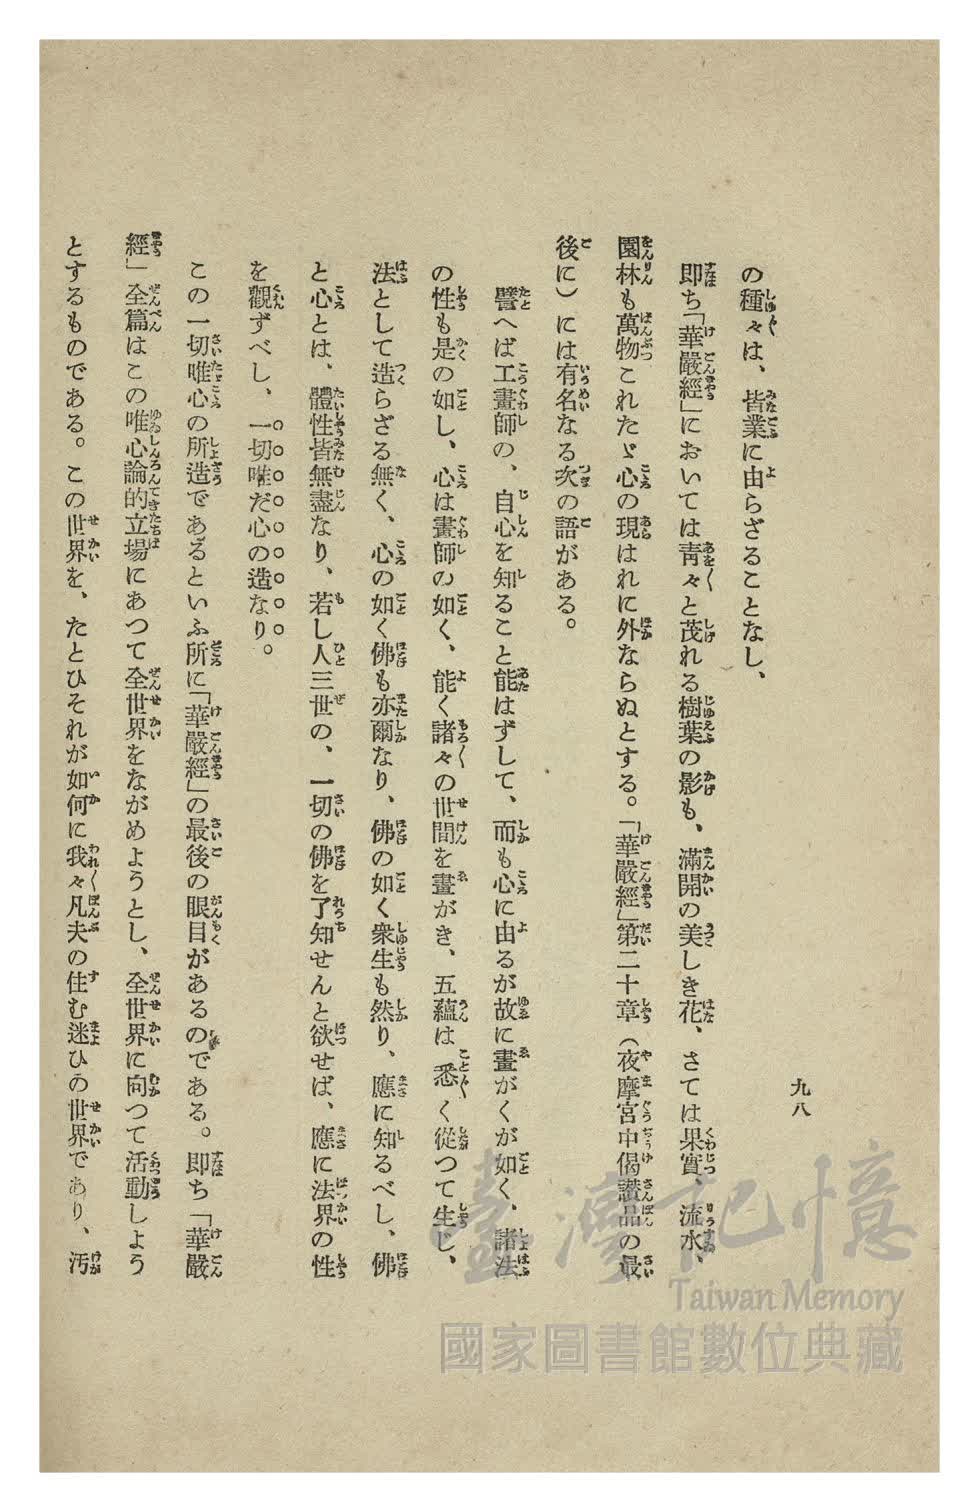 九八
の種々は、皆業に由らざることなし、
卽ち「華嚴經」においては靑々と茂れる樹葉の影も、滿開の美しき花、さては果實、流水、
園林も萬物これたゞ心の現はれに外ならぬとする。「華嚴經」第二十章(夜摩宮中偈讚品の最
後に)には有名なる次の語がある。
譬へば工畫師の、自心を知ること能はずして、而も心に由るが故に畫がくが如く、諸法
の性も是の如し、心は畫師の如く、能く諸々の世間を畫がき、五蘊は悉く從つて生じ、
法として造らざる無く、心の如く佛も亦爾なり、佛の如く衆生も然り、應に知るべし、佛
と心とは、體性皆無盡なり、若し人三世の、一切の佛を了知せんと欲せば、應に法界の性
を觀ずべし、一切唯だ心の造なり。
この一切唯心の所造であるといふ所に「華嚴經」の最後の眼目があるのである。卽ち「華嚴
經」全篇はこの唯心論的立場にあつて全世界をながめようとし、全世界に向つて活動しよう
とするものである。この世界を、たとひそれが如何に我々凡夫の住む迷ひの世界であり、汚
臺灣記憶
Taiwan Memory
國家圖書館數位典藏